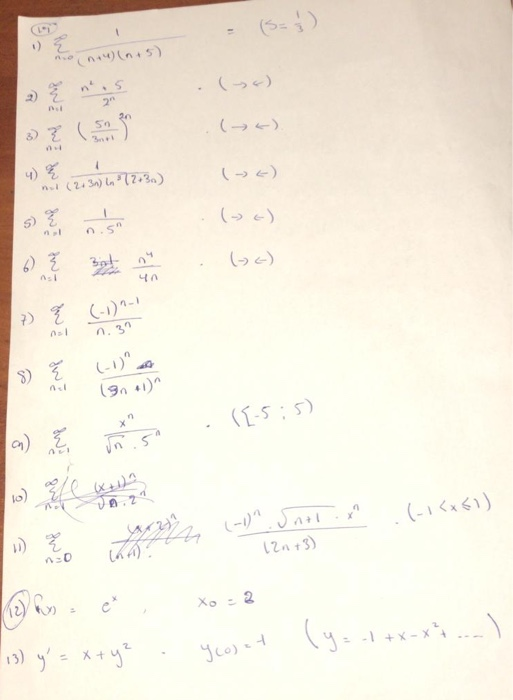 1) ∞ Σ n=0 1/((n+4)(n+5)) = (S = 1/3)
2) ∞ Σ n=1 (n² + 5)/2ⁿ . (→ ←)
3) ∞ Σ n=1 (5n/(3n+1))²ⁿ . (→ ←)
4) ∞ Σ n=1 1/((2+3n) ln³(2+3n)) (→ ←)
5) ∞ Σ n=1 1/(n · 5ⁿ) . (→ ←)
6) ∞ Σ n=1 n⁴/4n . (→ ←)
7) ∞ Σ n=1 (-1)ⁿ⁻¹/(n · 3ⁿ)
8) ∞ Σ n=1 (-1)ⁿ/(3n+1)ⁿ
9) ∞ Σ n=1 xⁿ/(√n · 5ⁿ) . ([-5 ; 5)
10) ∞ Σ n=1 (x+1)ⁿ/(√n · 2ⁿ)
11) ∞ Σ n=0 (-1)ⁿ · √(n+1) · xⁿ/(2n+3) . (-1 < x ≤ 1)
12) f(x) = eˣ , x₀ = 2
13) y' = x + y² . y(0) = -1 (y = -1 + x - x² + ....)